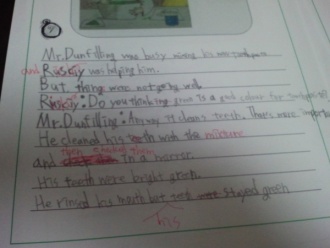 Mr. Dunfilling was busy mixing his new toothpaste
and Riskiy was helping him.
But, things were not going well.
Riskiy: Do you thinking green is a good colour for toothpaste
Mr. Dunfilling: Anyway it cleans teeth. Thats more important
He cleaned his teeth with the mixture
and then looked them In a mirror.
His teeth were bright green.
He rinsed his mouth but stayed green
his